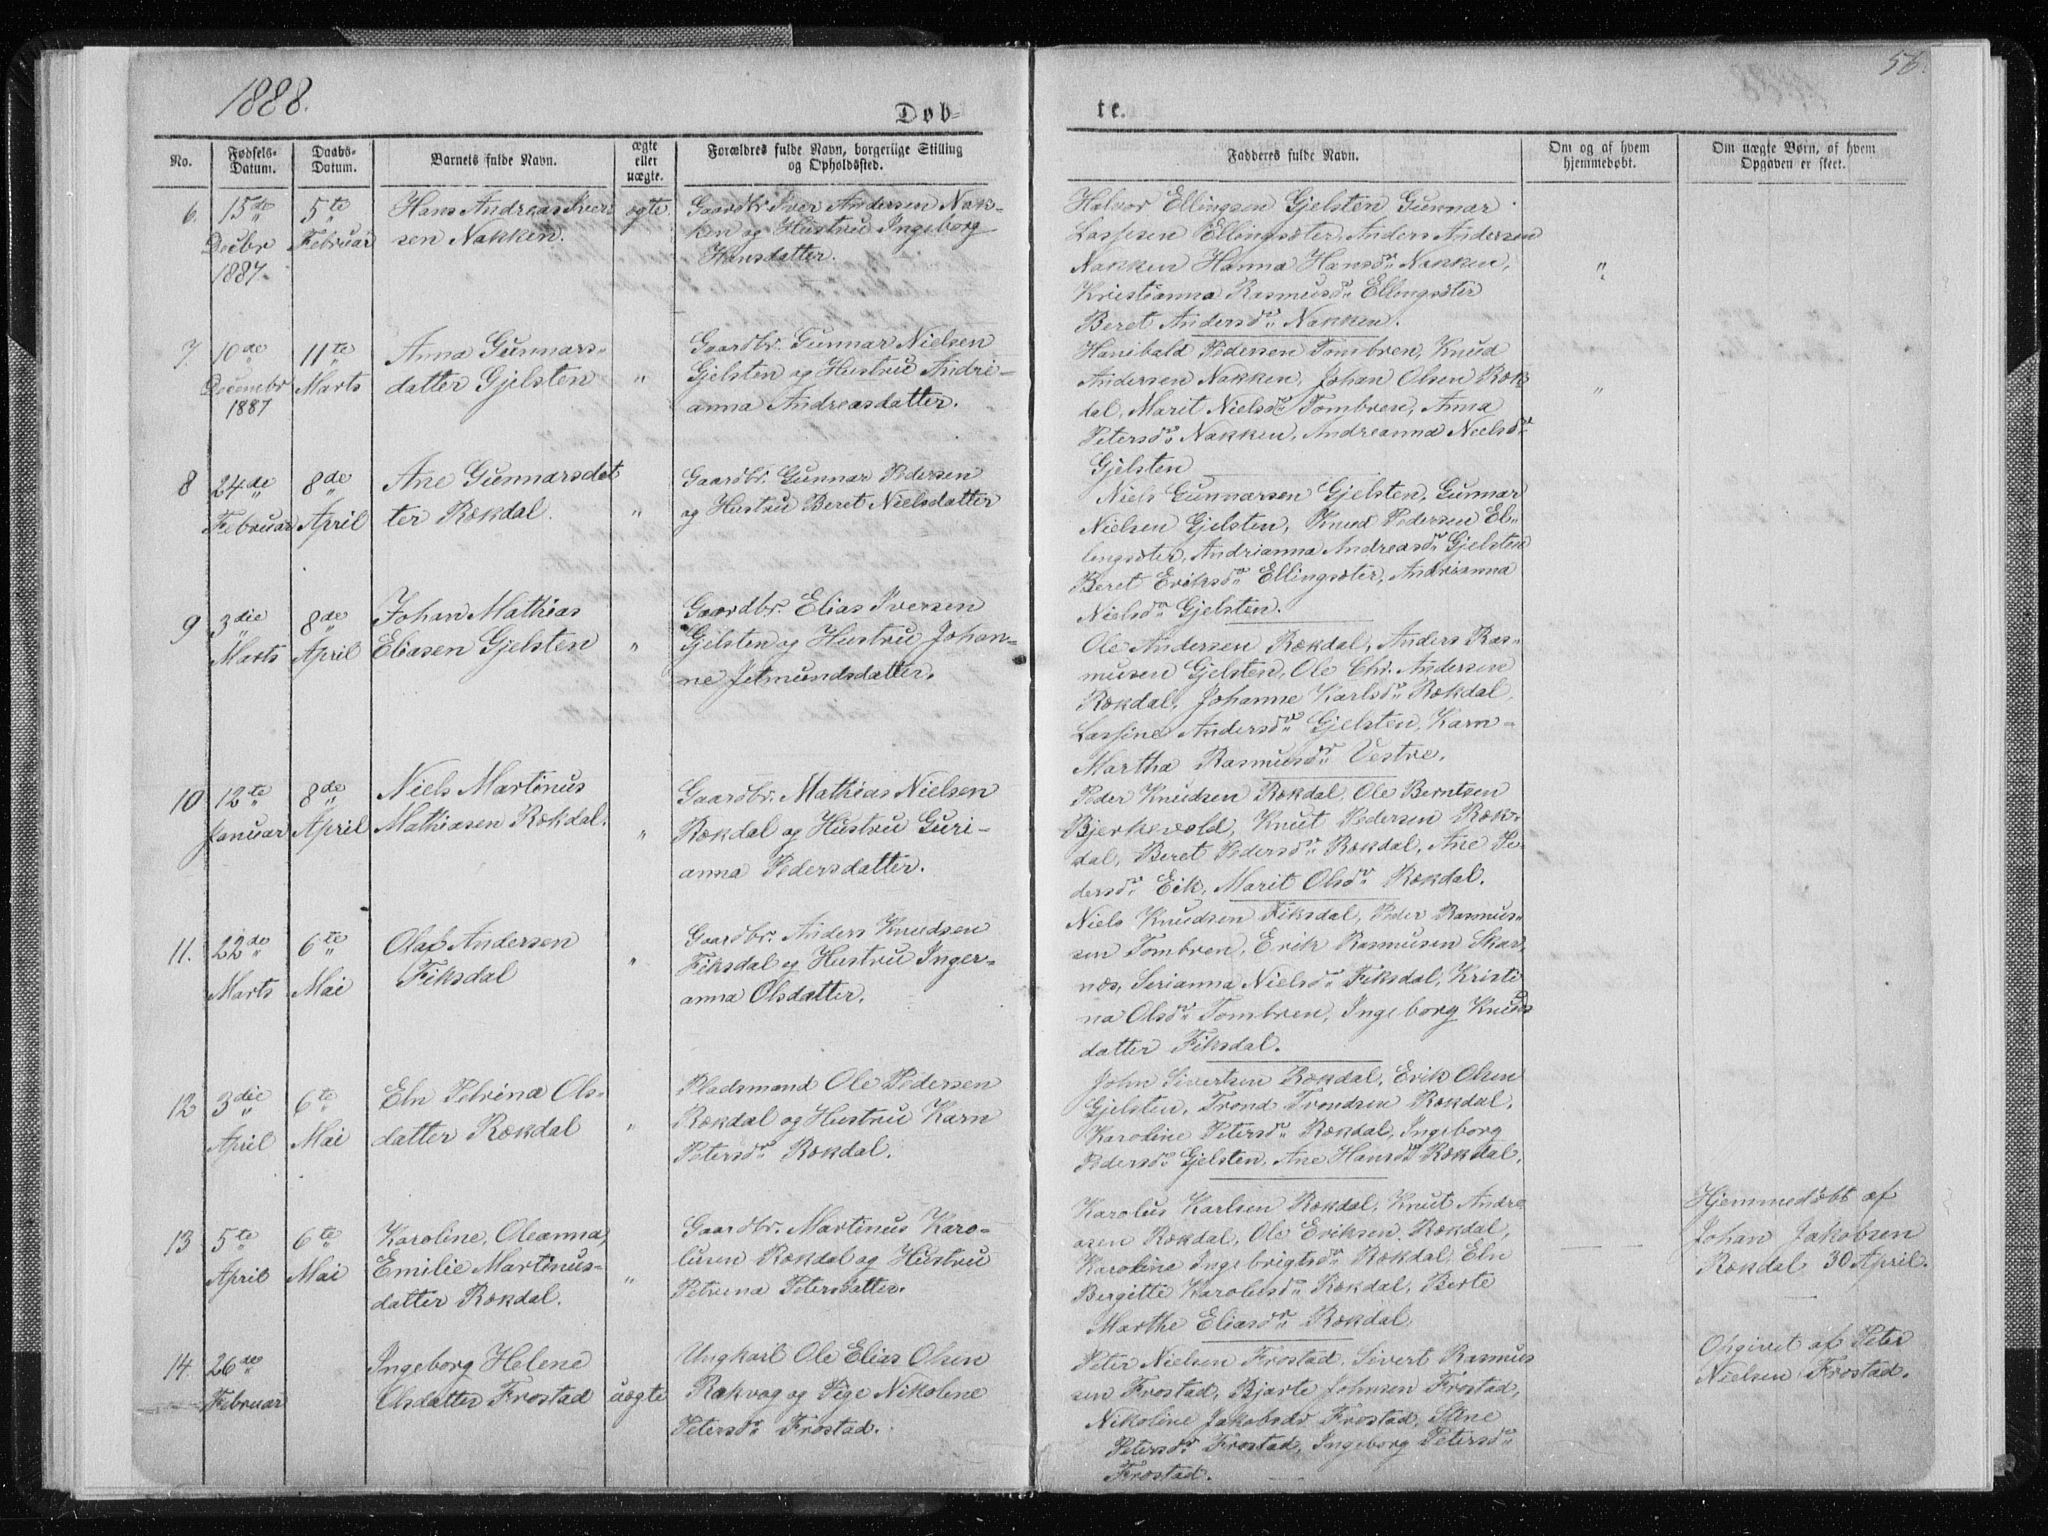 1888.
56.
Døb-
te.
No.
Fødsels-
Datum.
Daabs-
Datum.
Barnets fulde Navn.
ægte
eller
uægte.
Forældres fulde Navn, borgerlige Stilling
og Opholdssted.
Fadderes fulde Navn.
Om og af hvem
hjemmedøbt.
Om uægte Børn, af hvem
Opgaven er skeet.
6.
15de
Decbr
1887.
5te
Februar
Hans Andreas Iver-
sen Nakken.
ægte
Gaardbr. Iver Andersen Nak-
ken og Hustru Ingeborg
Hansdatter.
Halvor Ellingsen Gjelsten Gunnar
Lassesen Ellingsæter, Anders Andersen
Nakken Hanna Hansdr Nakken,
Kristianna Rasmusdr Ellingsæter
Beret Andersdr Nakken.
"
7.
10de
Decembr
1887
11te
Marts
Anna Gunnars-
datter Gjelsten
"
Gaardbr. Gunnar Nielsen
Gjelsten og Hustru Andri-
anna Andreasdatter.
Hanibald Pedersen Tombren, Knud
Andersen Nakken, Johan Olsen Røk-
dal, Marit Nielsdr Tombren, Anna
Petersdr Nakken, Andreanna Nielsdr
Gjelsten
"
8
24de
Februar
8de
April
Ane Gunnarsdat
ter Rækdal.
"
Gaardbr. Gunnar Pedersen
og Hustru Beret Nielsdatter
Niels Gunnarsen Gjelsten, Gunnar
Nielsen Gjelsten, Knud Pedersen El-
lingsæter, Andrianna Andreasdr Gjelsten
Beret Eriksdr Ellingsæter, Andrianna
Nielsdr Gjelsten.
9
3die
Marts
8de
April
Johan Mathias
Eliasen Gjelsten
"
Gaardbr. Elias Iversen
Gjelsten og Hustru Johan-
ne Jetmundsdatter.
Ole Andersen Rækdal, Anders Ras-
musen Gjelsten, Ole Chr. Andersen
Rækdal, Johanne Karlsdr Rækdal,
Lassine Andersdr Gjelsten, Karn-
Martha Rasmusdr Vestre.
10
12te
Januar
8de
April
Niels Martinus
Mathiasen Rækdal.
"
Gaardbr. Mathias Nielsen
Rækdal og Hustru Guri-
anna Pedersdatter.
Peder Knudsen Rækdal, Ole Berntsen
Bjerkevold, Knut Pedersen Ræk-
dal, Beret Pedersdr Rækdal, Ane Pe-
dersdr Eik, Marit Olsdr Rækdal.
11.
22de
Marts
6te
Mai
Olaf Andersen
Fiksdal
"
Gaardbr. Anders Knudsen
Fiksdal og Hustru Inger-
anna Olsdatter.
Niels Knudsen Fiksdal, Peder Rasmus-
sen Tombren, Erik Rasmusen Skar-
næs, Serianna Nielsdr Fiksdal, Kristi
na Olsdr Tombren, Ingeborg Knuds
datter Fiksdal.
12
3die
April
6te
Mai
Eln Petrina Ols-
datter Rækdal
"
Pladsmand Ole Pedersen
Rækdal og Hustru Karn
Petersdr Rækdal.
John Sivertsen Rækdal, Erik Olsen
Gjelsten, Trond Trondsen Rækdal,
Karoline Petersdr Rækdal, Ingeborg
Pedersdr Gjelsten, Ane Hansdr Rækdal.
13
5te
April
6te
Mai
Karoline, Oleanna,
Emilie Martinus-
datter Rækdal.
"
Gaardbr. Martinus Karo-
lusen Rækdal og Hustru
Petrina Petersdatter.
Karolus Karlsen Rækdal, Knut Andre
asen Rækdal, Ole Eriksen Rækdal,
Karoline Ingebrigtsdr Rækdal, Eln
Bergitte Karolusdr Rækdal, Berte
Marthe Eliasdr Rækdal.
Hjemmedøbt af
Johan Jakobsen
Rækdal 30 April.
14
26de
Februar
Ingeborg Helene
Olsdatter Frostad
uægte
Ungkarl Ole Elias Olsen
Rakvaag og Pige Nikoline
Petersdr Frostad.
Peter Nielsen Frostad, Sivert Rasmus
sen Frostad, Bjarte Johnsen Frostad,
Nikoline Jakobsdr Frostad, Stine
Petersdr Frostad, Ingeborg Petersdr
Frostad.
Opgivet af Peter
Nielsen Frostad.